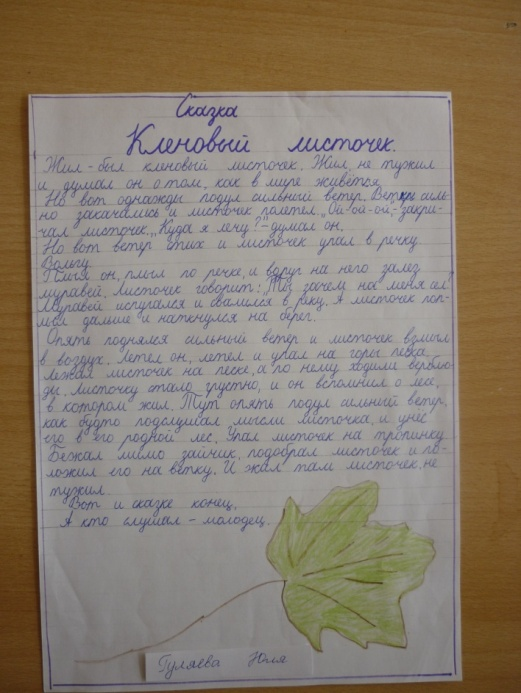 Сказка
Кленовый листочек.
Жил-был кленовый листочек. Жил, не тужил
и думал он о том, как в мире живётся.
Но вот однажды подул сильный ветер. Ветки силь-
но закачались и листочек полетел. „Ой-ой-ой,-закри-
чал листочек. „Куда я лечу?"-думал он.
Но вот ветер стих и листочек упал в речку
Волгу.
Плыл он, плыл по речке, и вдруг на него залез
муравей. Листочек говорит: „Ты зачем на меня сел"
Муравей испугался и свалился в реку. А листочек поп-
лыл дальше и наткнулся на берег.
Опять поднялся сильный ветер и листочек взмыл
в воздух. Летел он, летел и упал на горы песка.
Лежал листочек на песке, а по нему ходили верблю-
ды. Листочку стало грустно, и он вспомнил о лесе,
в котором жил. Тут опять подул сильный ветер,
как будто подслушал мысли листочка, и унес
его в его родной лес. Упал листочек на тропинку
Бежал мимо зайчик, подобрал листочек и по-
ложил его на ветку. И жил там листочек, не
тужил.
Вот и сказке конец,
А кто слушал - молодец.
Гуляева Юля